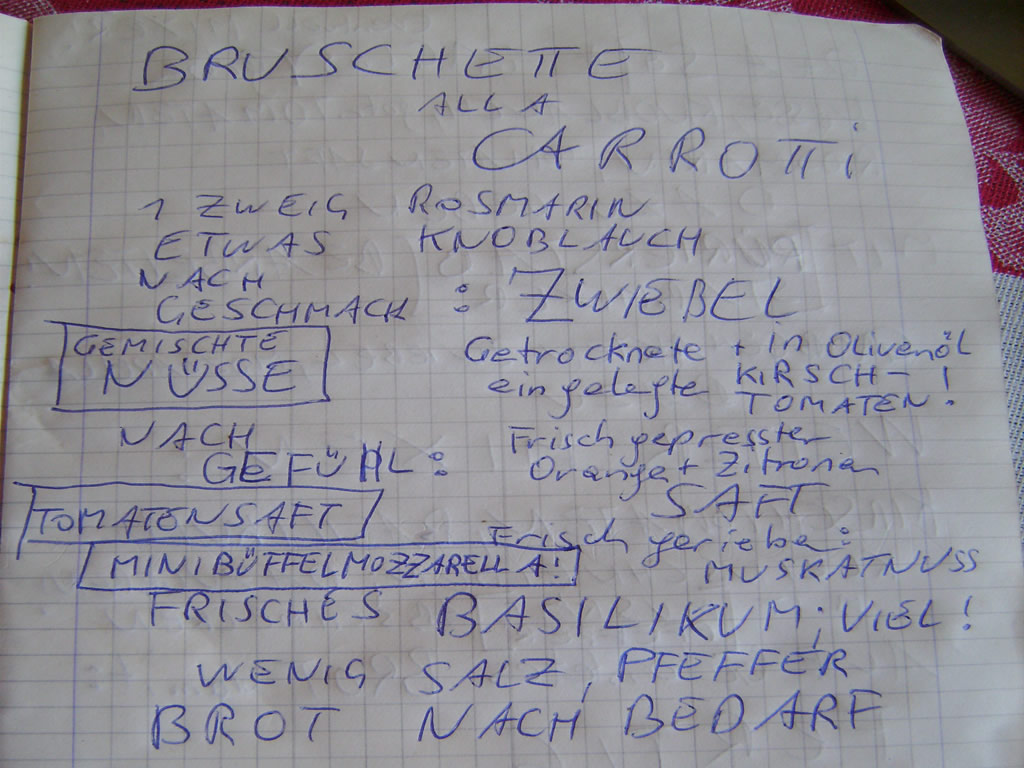 BRUSCHETTE
ALLA
CARROTTi
1 ZWEIG ROSMARIN
ETWAS KNOBLAUCH
NACH
GESCHMACK : ZWIEBEL
GEMISCHTE
NÜSSE
Getrocknete + in Olivenöl
eingelegte KIRSCH-
TOMATEN!
NACH
GEFÜHL:
Frisch gepresster
Orange + Zitronen
SAFT
TOMATENSAFT
Frisch geriebe:
MUSKATNUSS
MINIBÜFFELMOZZARELLA!
FRISCHES BASILIKUM; VIEL!
WENIG SALZ, PFEFFER
BROT NACH BEDARF